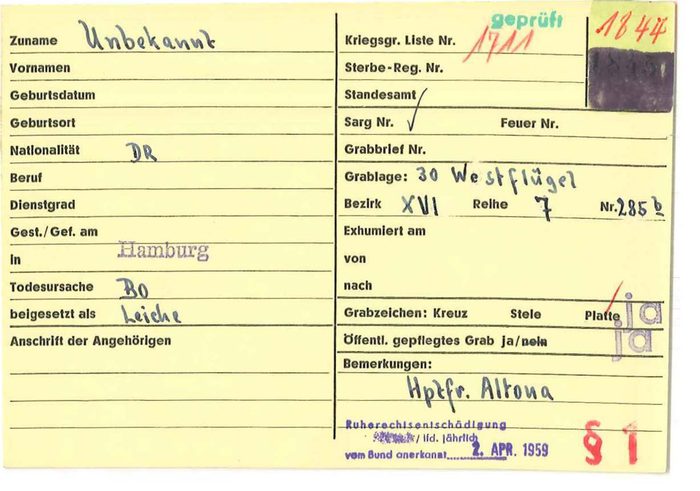 Zuname Unbekannt
Vornamen
Geburtsdatum
Geburtsort
Nationalität DR
Beruf
Dienstgrad
Gest./Gef. am
in Hamburg
Todesursache BO
beigesetzt als Leiche
Anschrift der Angehörigen
geprüft
1844
Kriegsgr. Liste Nr. 1711
Sterbe-Reg. Nr.
Standesamt
Sarg Nr. Feuer Nr.
Grabbrief Nr.
Grablage: 30 Westflügel
Bezirk XVI Reihe 7 Nr. 285 b
Exhumiert am
von
nach
Grabzeichen: Kreuz Stele Platte ja
Öffentl. gepflegtes Grab ja/nein ja
Bemerkungen:
Hptfr. Altona
Ruherechtsentschädigung
/ lfd. jährlich
vom Bund anerkannt 2. APR. 1959
§ 1